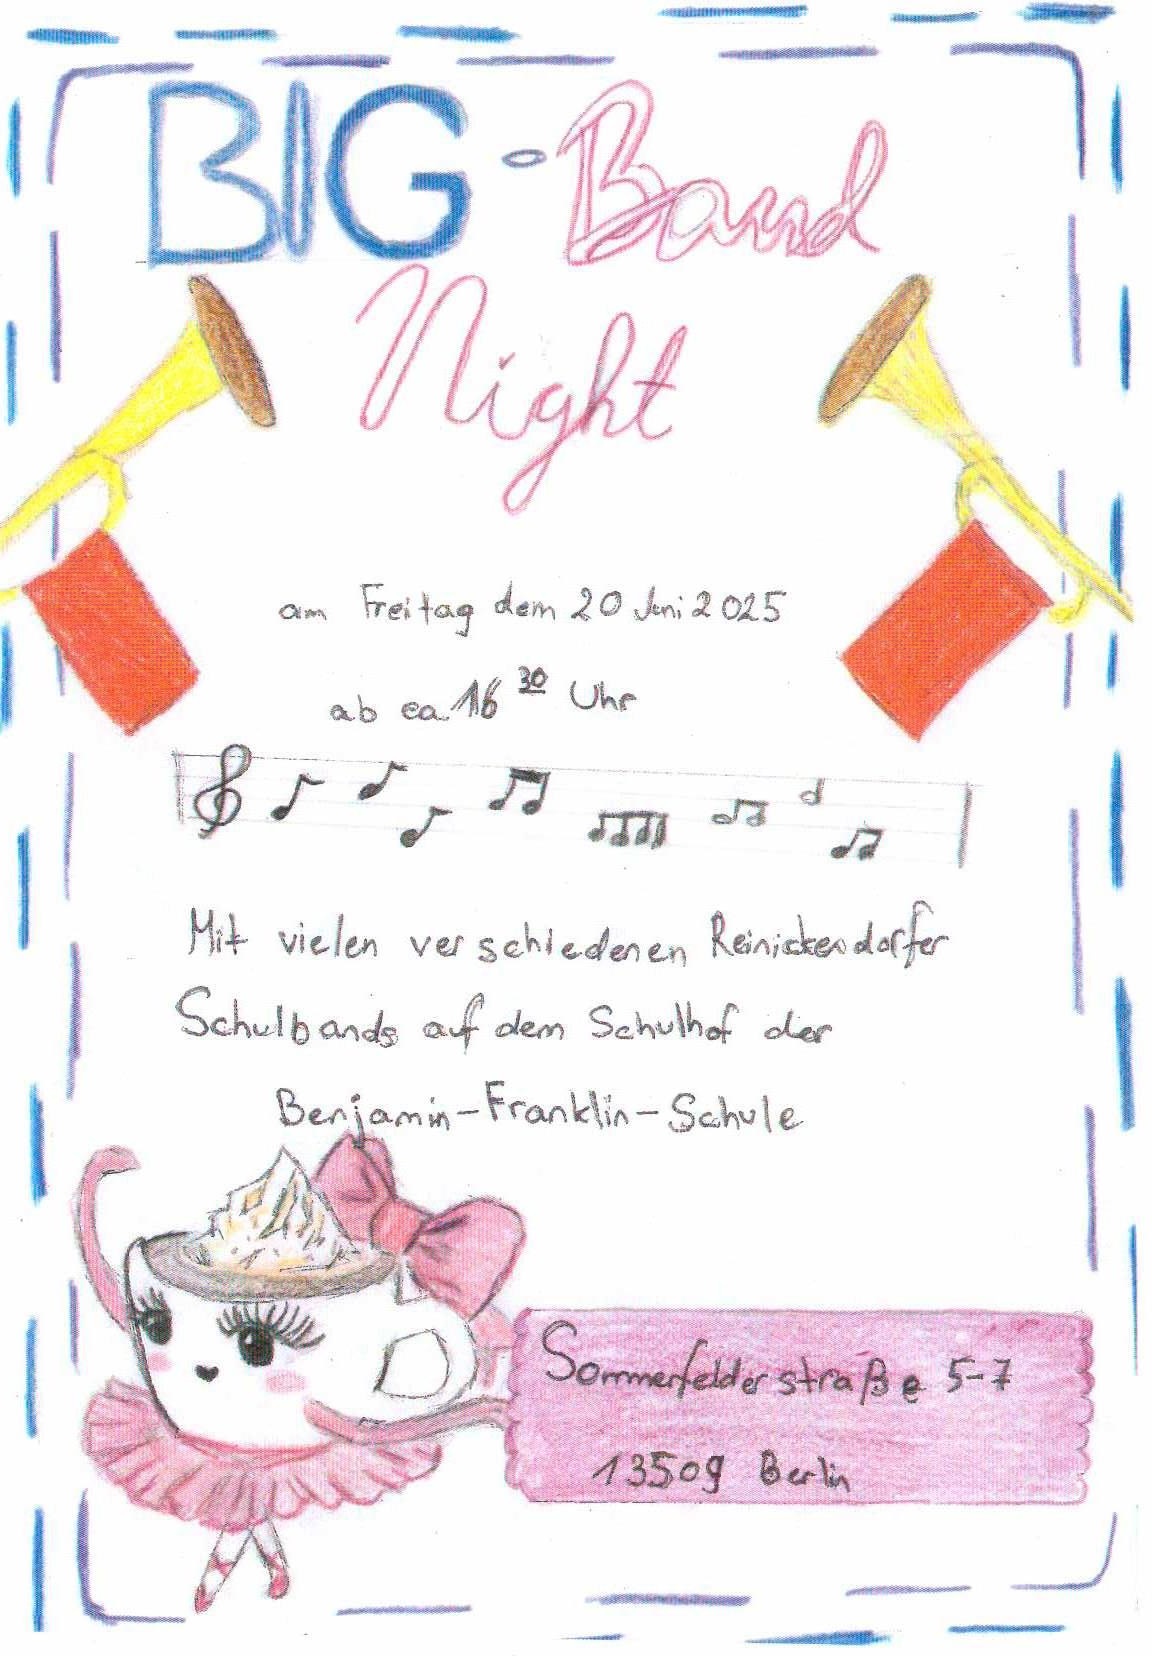 BIG-Band
Night
am Freitag dem 20 Juni 2025
ab ca. 16 30 Uhr
Mit vielen verschiedenen Reinickendorfer
Schulbands auf dem Schulhof der
Benjamin-Franklin-Schule
Sommerfelderstraße 5-7
13509 Berlin